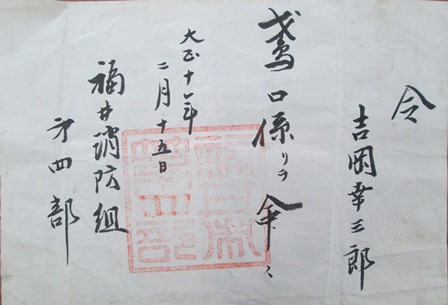 吉岡幸三郎
鳶口係リヲ命ス
大正十一年
二月十五日
福井消防組
第四部